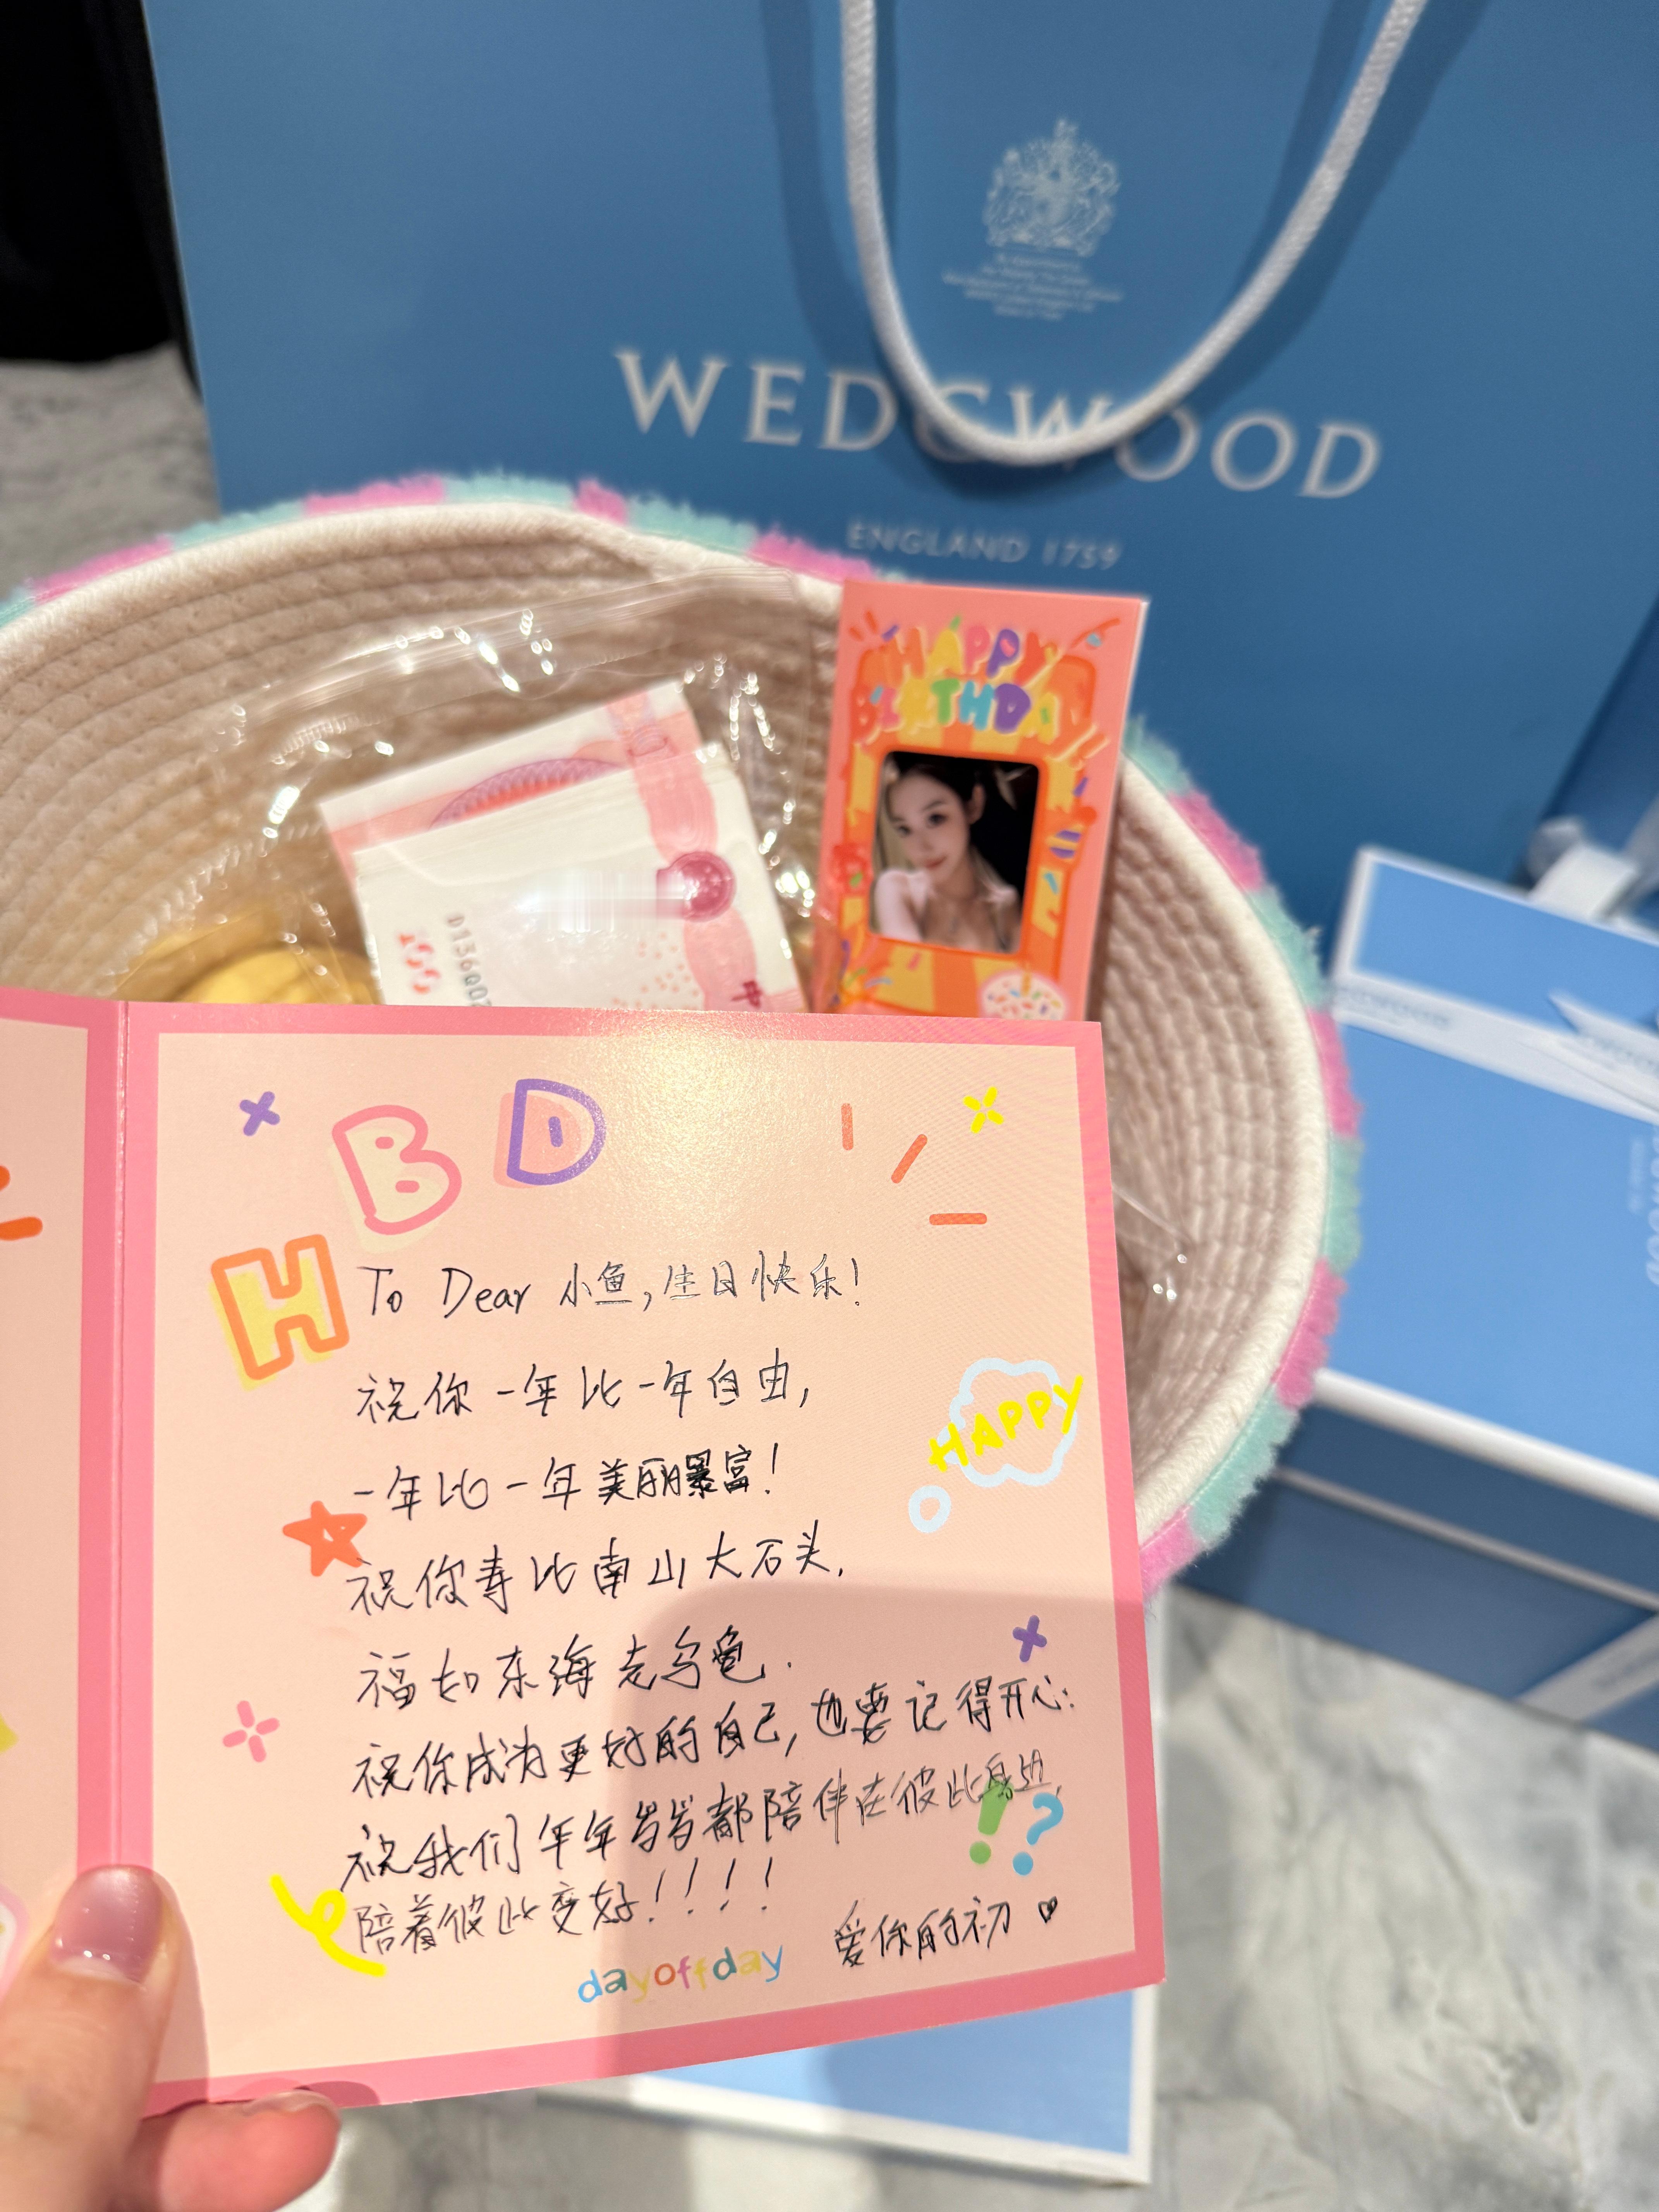 WEDGWOOD
ENGLAND 1759
HAPPY
BIRTHDAY
100
D1360
HBD
To Dear 小鱼,生日快乐!
祝你一年比一年自由,
一年比一年美丽暴富!
HAPPY
祝你寿比南山大石头,
福如东海老乌龟.
祝你成为更好的自己,也要记得开心:
祝我们年年岁岁都陪伴在彼此身边,
!?
陪着彼此变好!!!!
爱你的初♡
dayoffday